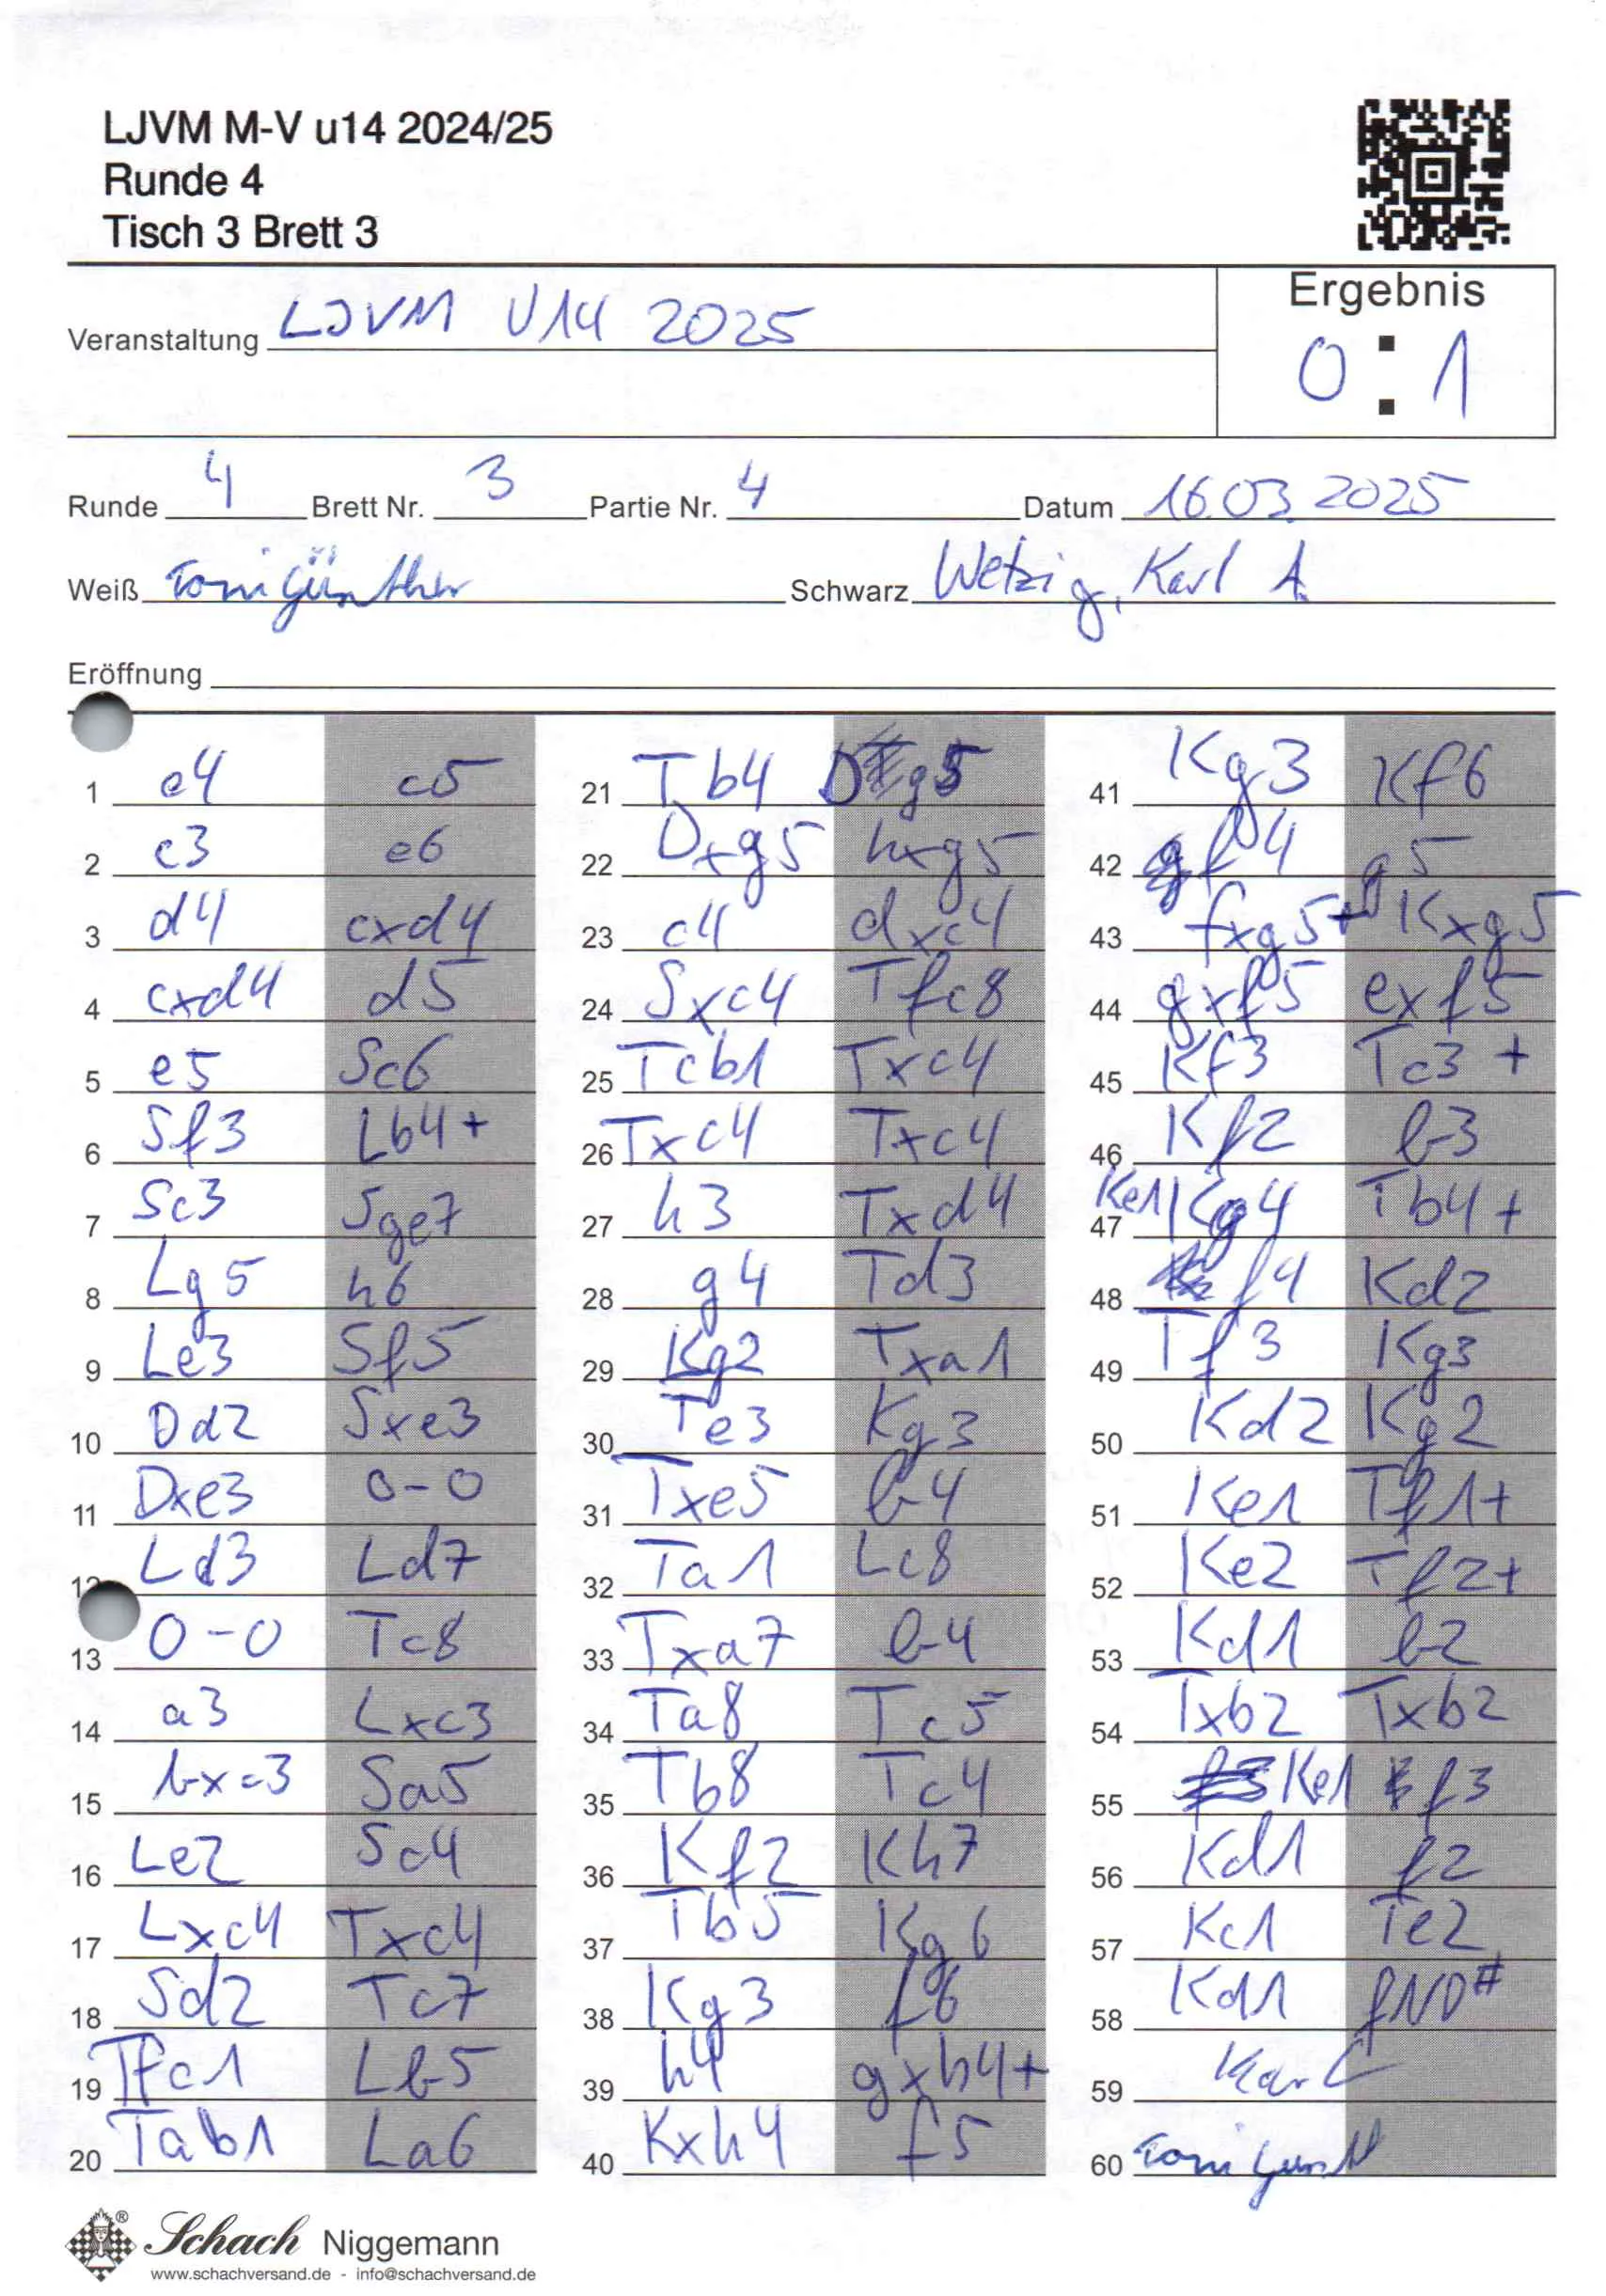 LJVM M-V u14 2024/25
Runde 4
Tisch 3 Brett 3
Ergebnis
Veranstaltung LJVM U14 2025
0 : 1
Runde 4 Brett Nr. 3 Partie Nr. 4 Datum 16.03.2025
Weiß Toni Günther Schwarz Wetzig, Karl A.
Eröffnung
1 e4 c5
2 c3 e6
3 d4 cxd4
4 cxd4 d5
5 e5 Sc6
6 Sf3 Lb4+
7 Sc3 Sge7
8 Lg5 h6
9 Le3 Sf5
10 Dd2 Sxe3
11 Dxe3 0-0
12 Ld3 Ld7
13 0-0 Tc8
14 a3 Lxc3
15 bxc3 Sa5
16 Le2 Sc4
17 Lxc4 Txc4
18 Sd2 Tc7
19 Tfc1 Lb5
20 Tab1 La6
21 Tb4 Dg5
22 Dxg5 hxg5
23 c4 dxc4
24 Sxc4 Tfc8
25 Tcb1 Txc4
26 Txc4 Txc4
27 h3 Txd4
28 g4 Td3
29 Kg2 Txa1
30 Te3 Kg3
31 Txe5 b4
32 Ta1 Lc8
33 Txa7 b4
34 Ta8 Tc5
35 Tb8 Tc4
36 Kf2 Kh7
37 Tb5 Kg6
38 Kg3 f6
39 h4 gxh4+
40 Kxh4 f5
41 Kg3 Kf6
42 f4 g5
43 fxg5+ Kxg5
44 gxf5 exf5
45 Kf3 Tc3+
46 Kf2 b3
47 Ke1 Kg4 Tb4+
48 f4 Kd2
49 Tf3 Kg3
50 Kd2 Kg2
51 Ke1 Tf1+
52 Ke2 Tf2+
53 Kd1 b2
54 Txb2 Txb2
55 Ke1 f3
56 Kd1 f2
57 Kc1 Te2
58 Kd1 f1D#
59 Karl
60 Toni Günth
Schach Niggemann
www.schachversand.de - info@schachversand.de